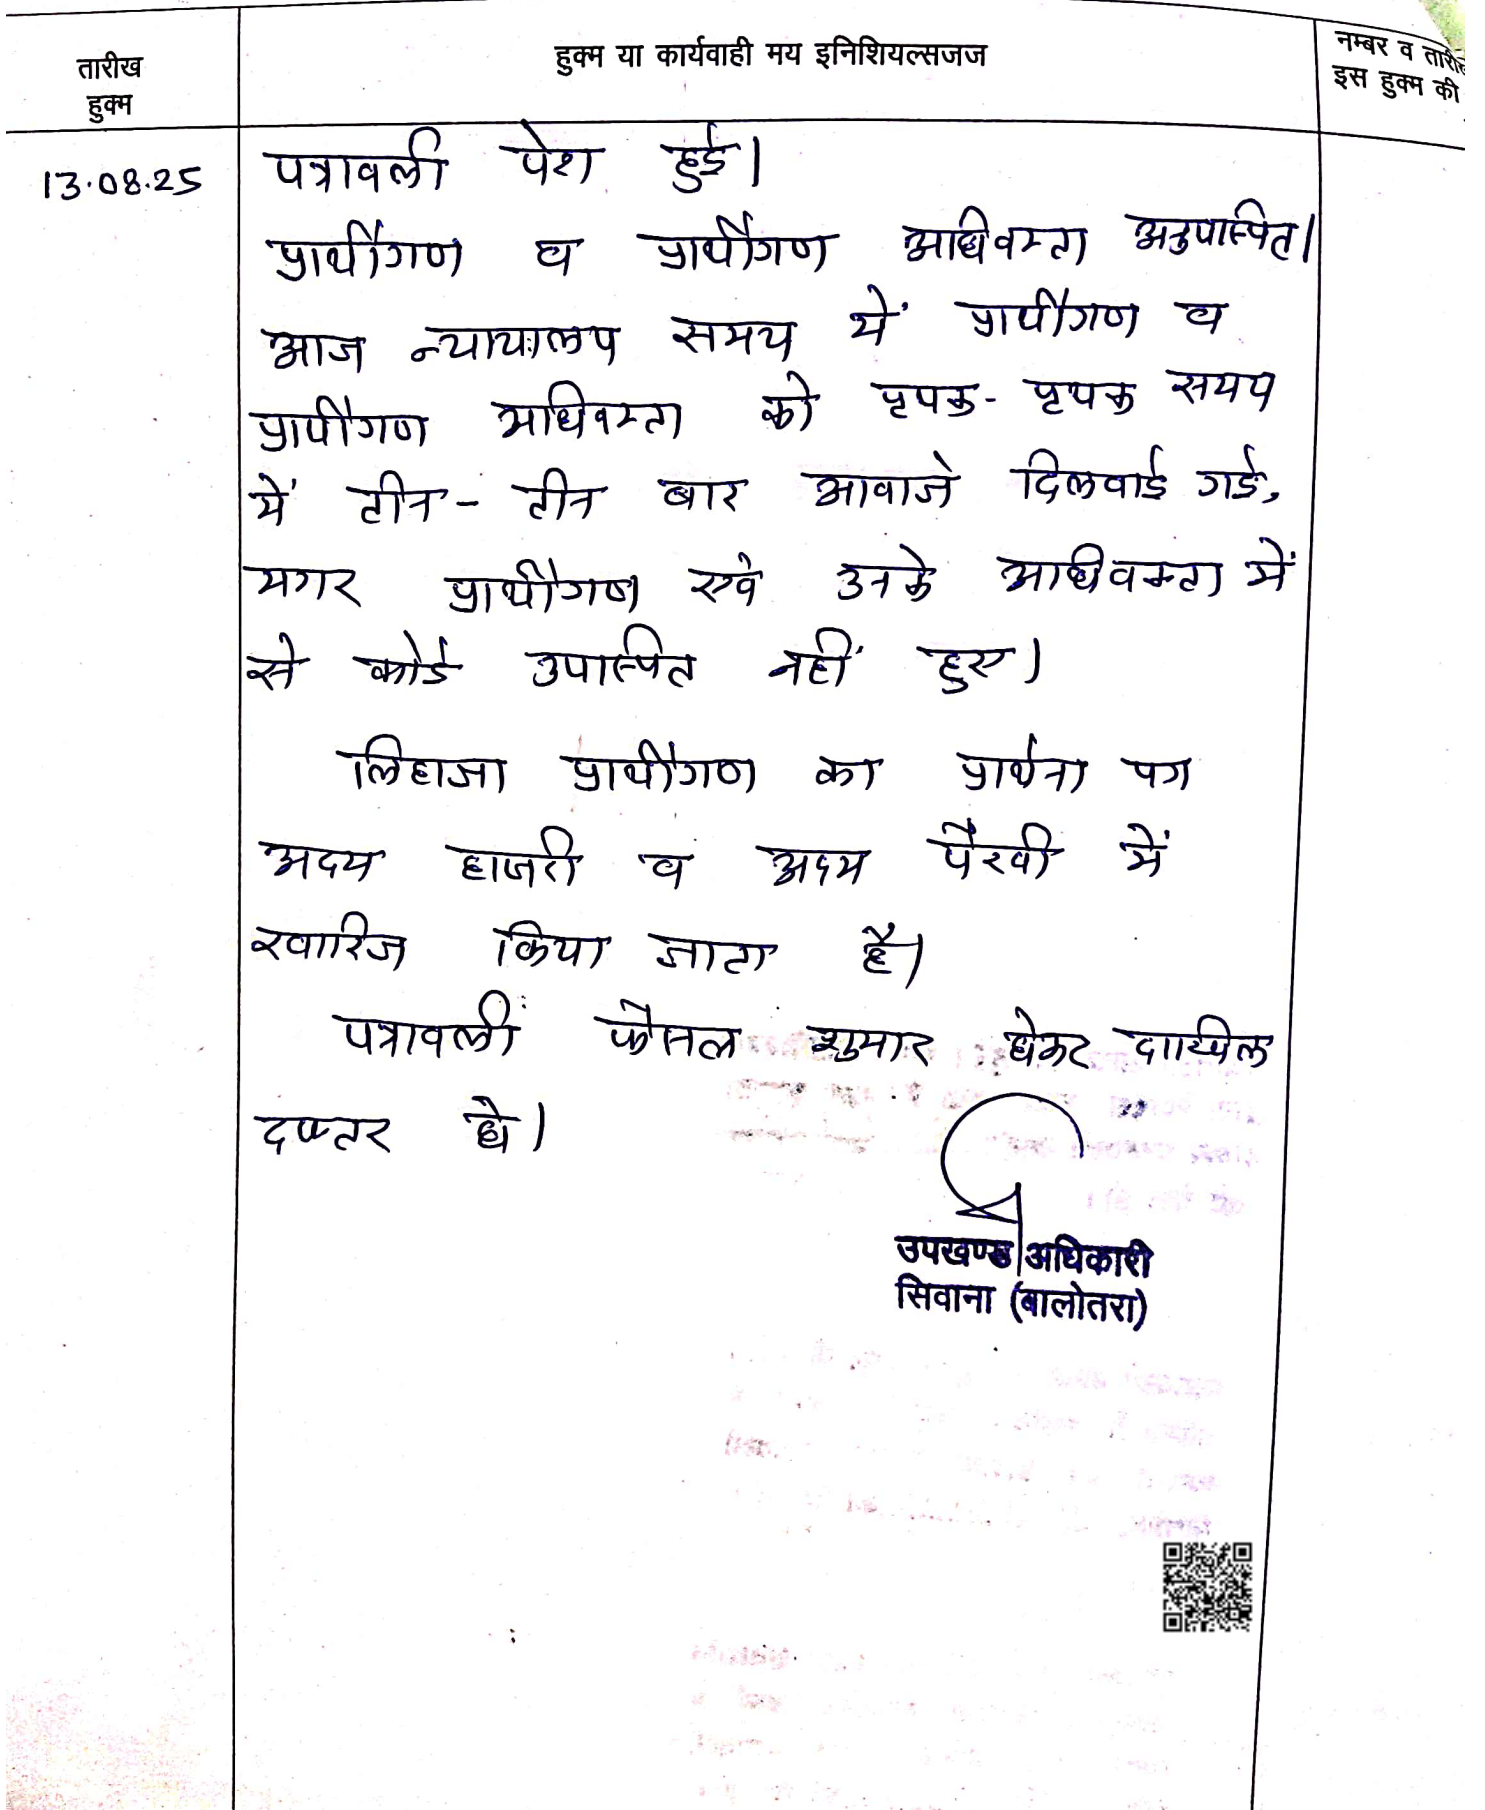 तारीख
हुक्म
हुक्म या कार्यवाही मय इनिशियल्सजज
नम्बर व तारीख
इस हुक्म की
13.08.25
पत्रावली पेश हुई।
प्रार्थीगण व प्रार्थीगण अधिवक्ता अनुपस्थित।
आज न्यायालय समय में प्रार्थीगण व
प्रार्थीगण अधिवक्ता को पृथक-पृथक समय
में तीन-तीन बार आवाजे दिलवाई गई,
मगर प्रार्थीगण एवं उनके अधिवक्ता में
से कोई उपस्थित नहीं हुए।
लिहाजा प्रार्थीगण का प्रार्थना पत्र
अदम हाजरी व अदम पैरवी में
खारिज किया जाता है।
पत्रावली फैसल शुमार होकर दाखिल
दफ्तर हो।
उपखण्ड अधिकारी
सिवाना (बालोतरा)